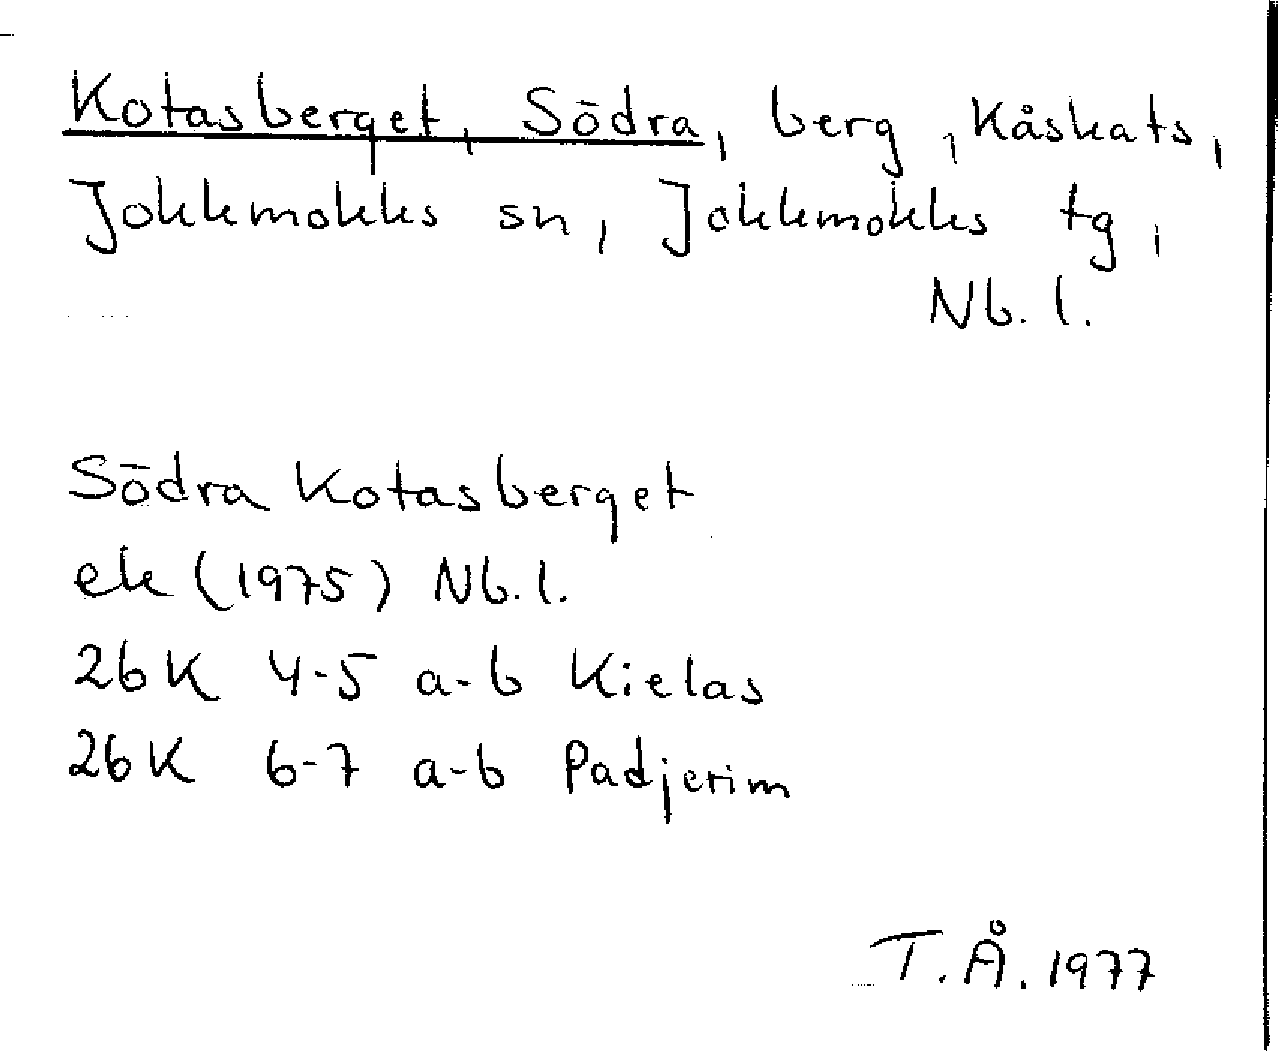 Kotasberget, Södra, berg, Kåskats,
Jokkmokks sn, Jokkmokks tg,
Nb. l.
Södra Kotasberget
ek (1975) Nb. l.
26K 4-5 a-b Kielas
26K 6-7 a-b Padjerim
T. Å. 1977